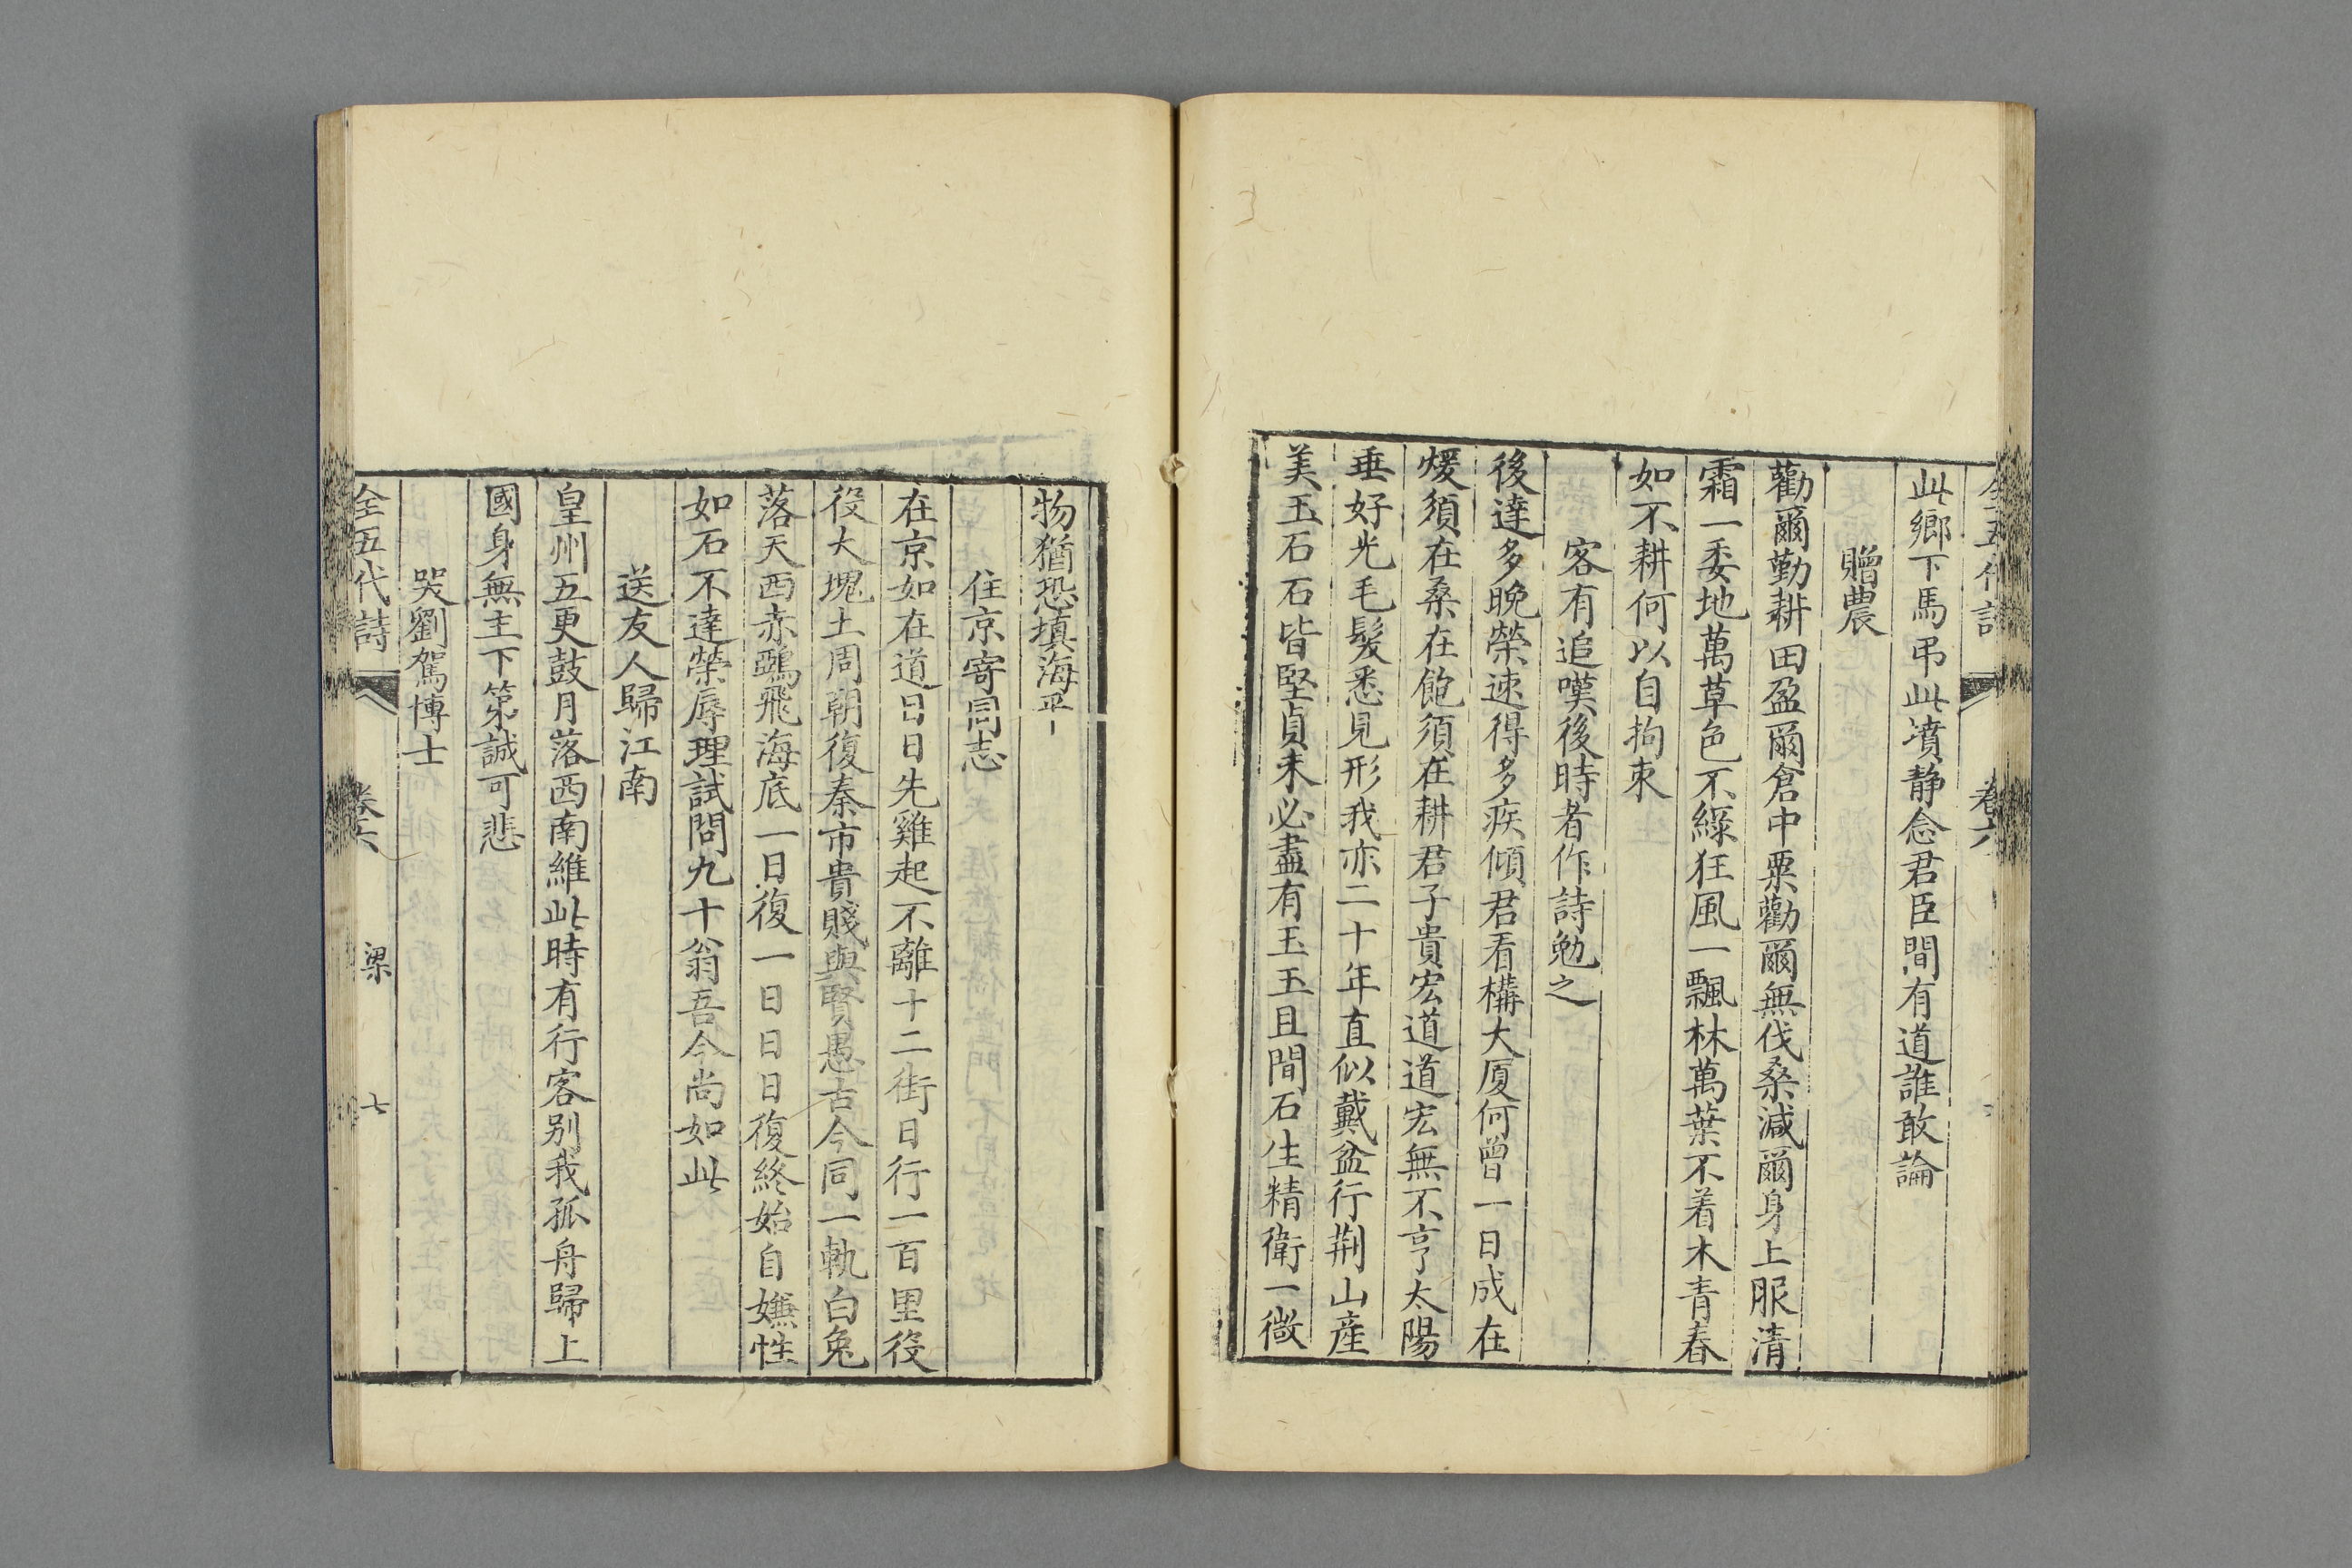 全五代詩 卷六
此鄉下馬弔此墳静念君臣間有道誰敢論
贈農
勸爾勤耕田盈爾倉中粟勸爾無伐桑減爾身上服清
霜一委地萬草色不綠狂風一飄林萬葉不着木青春
如不耕何以自拘束
客有追嘆後時者作詩勉之
後達多晚榮速得多疾傾君看構大厦何曾一日成在
煖須在桑在飽須在耕君子貴宏道道宏無不亨太陽
垂好光毛髮悉見形我亦二十年直似戴盆行荆山産
美玉石石皆堅貞未必盡有玉玉且間石生精衛一微
物猶恐填海平
住京寄同志
在京如在道日日先雞起不離十二街日行一百里役
役大塊土周朝復秦市貴賤與賢愚古今同一軌白兔
落天西赤鵶飛海底一日復一日日日復終始自嫌性
如石不達榮辱理試問九十翁吾今尚如此
送友人歸江南
皇州五更鼓月落西南維此時有行客别我孤舟歸上
國身無主下第誠可悲
哭劉駕博士
全五代詩 卷六 梁 七